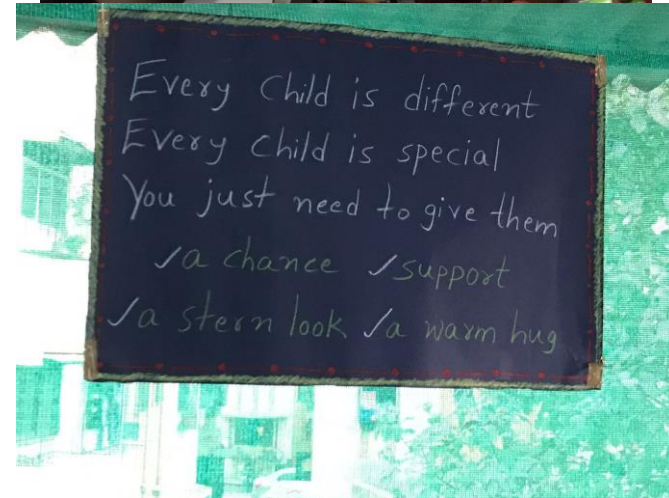 Every Child is different
Every child is special
You just need to give them
✓a chance ✓support
✓a stern look ✓a warm hug